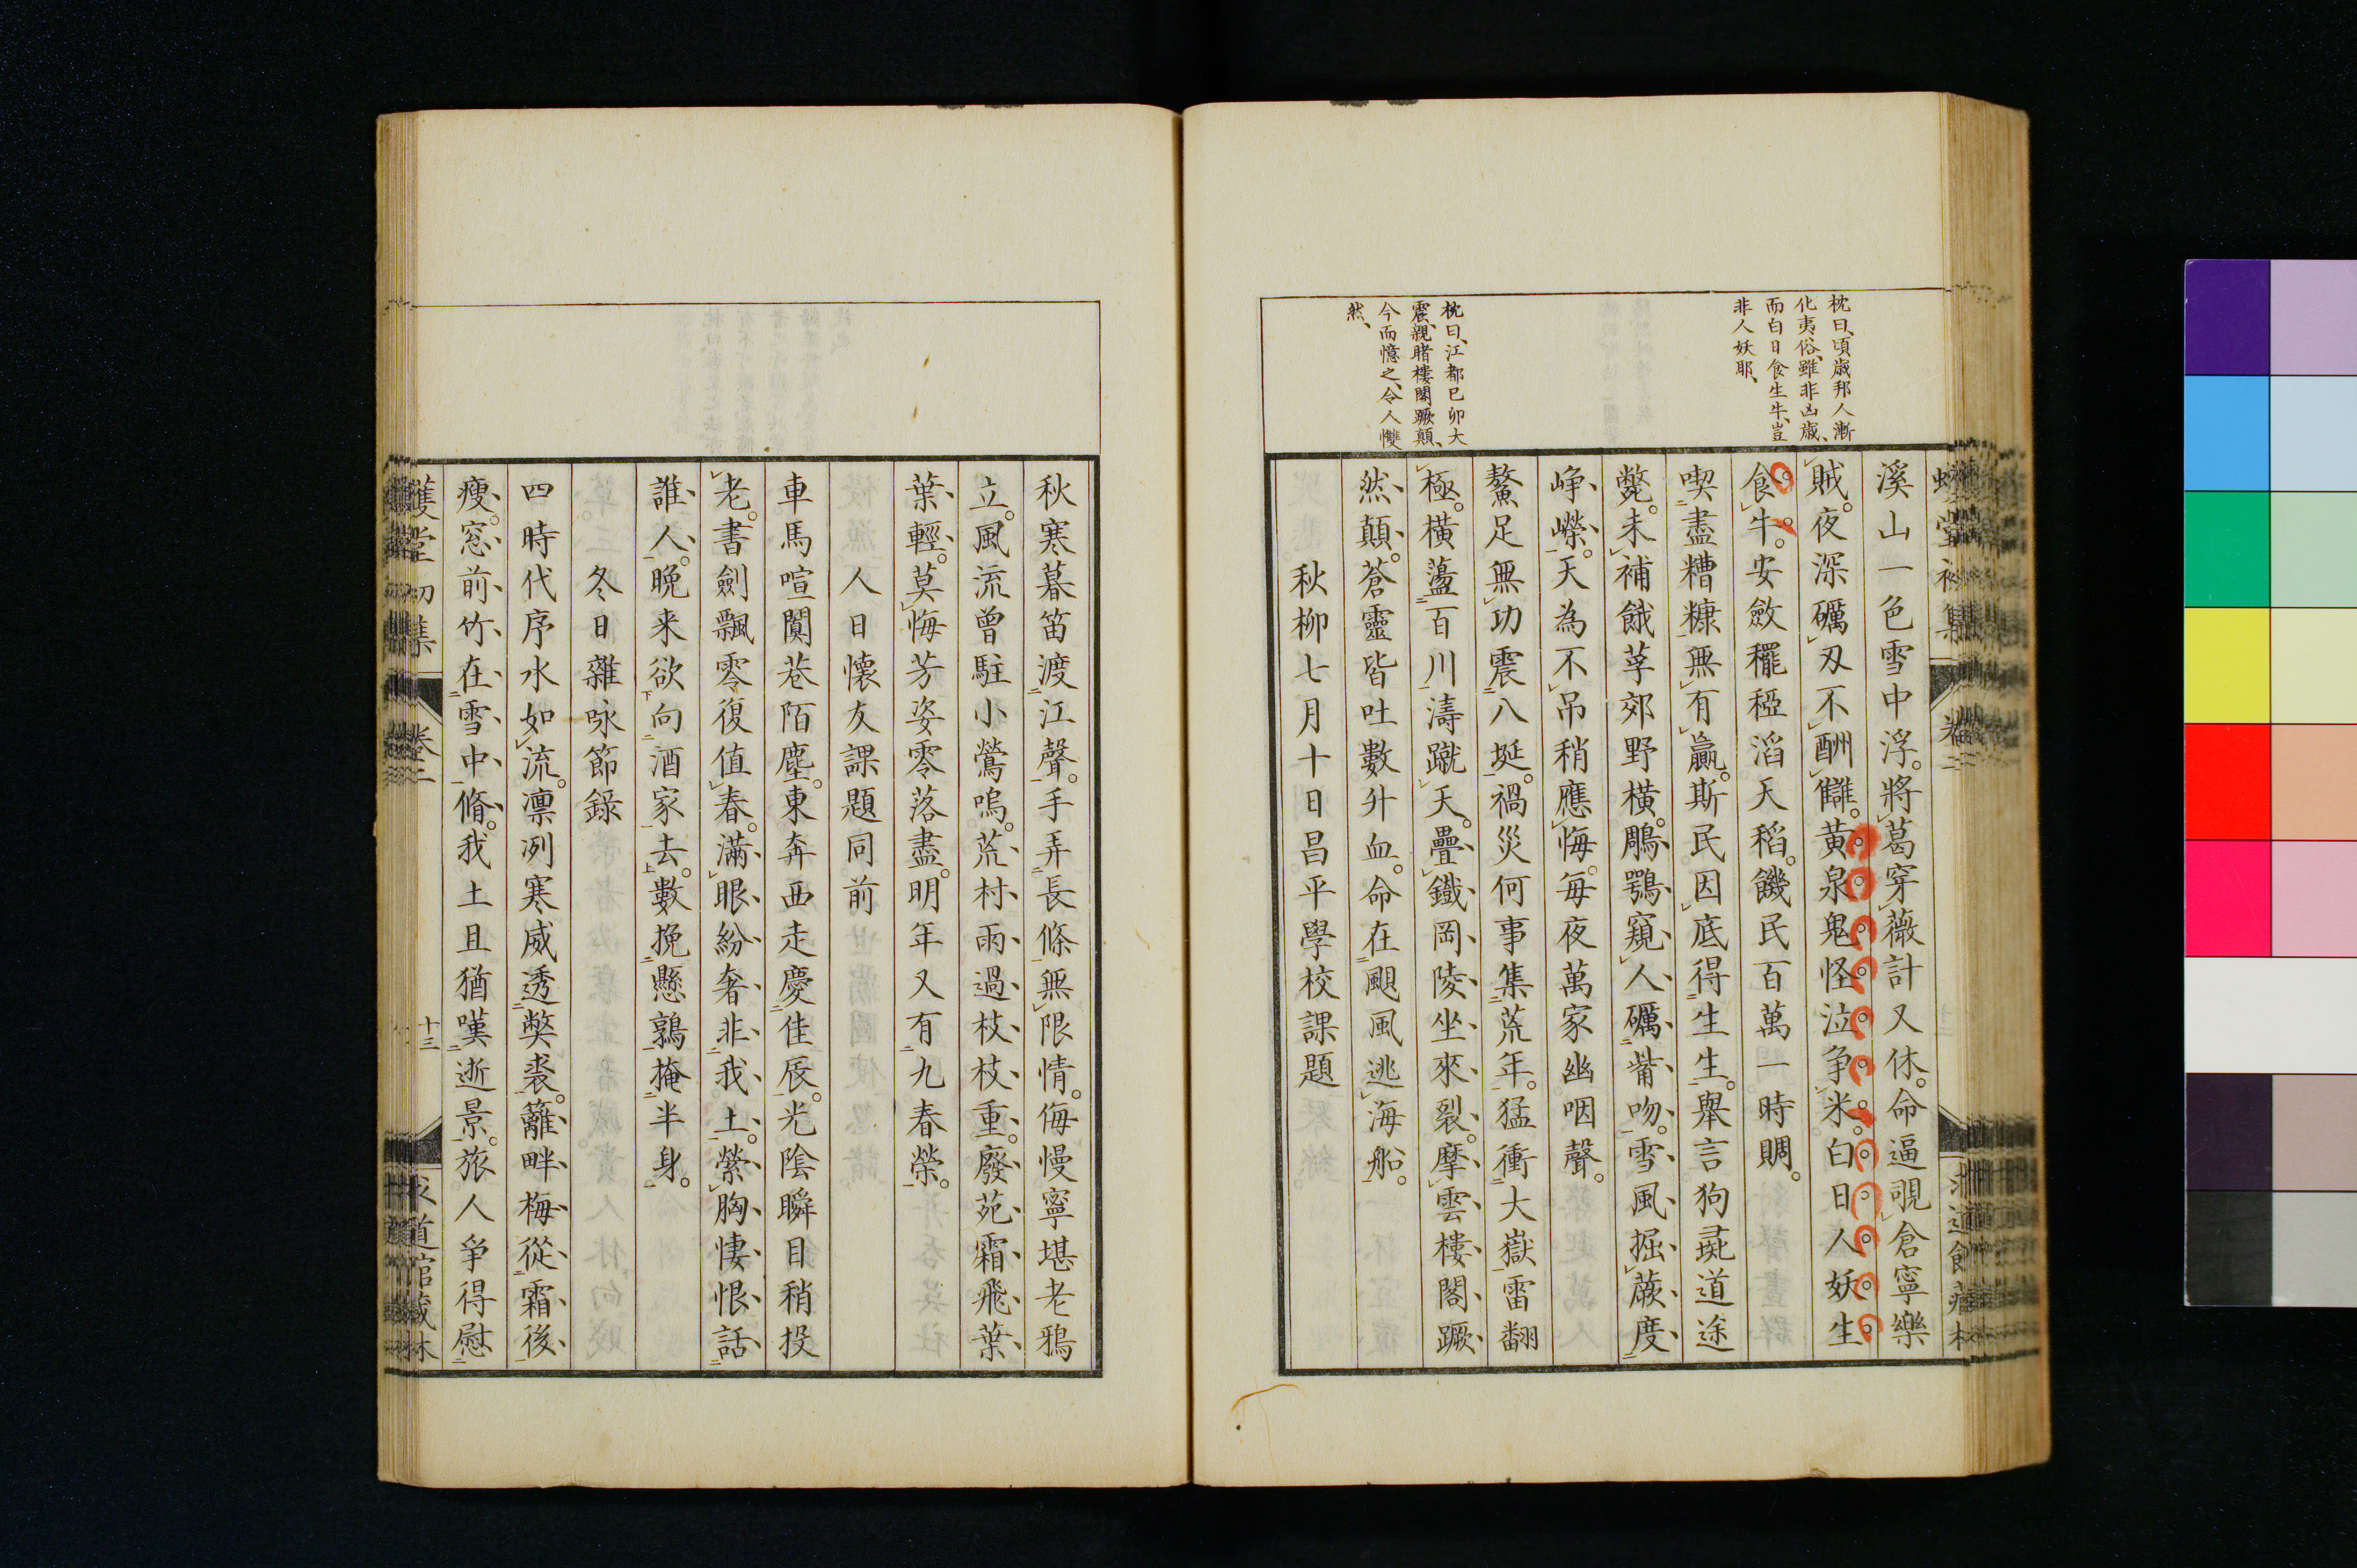 枕曰、頃歳邦人漸
化夷俗、雖非凶歳、
而白日食生牛、豈
非人妖耶、
枕曰、江都巳卯大
震、親睹樓閣蹶顛、
今而憶之、令人懼
然、
溪山一色雪中浮。將葛穿薇計又休。命逼覗倉寧樂
賊。夜深礪刄不酬讎。黄泉鬼怪泣争米。白日人妖生
食牛。安斂䆉稏滔天稻。饑民百萬一時賙。
喫盡糟糠無有贏。斯民因底得生生。舉言狗彘道途
斃。未補餓莩郊野横。鵰鶚窺人礪觜吻。雪風掘蕨度
崢嶸。天為不吊稍應悔。毎夜萬家幽咽聲。
鰲足無功震八埏。禍災何事集荒年。猛衝大嶽雷翻
極。横盪百川濤蹴天。疊鐵岡陵坐來裂。摩雲樓閣蹶
然顛。蒼靈皆吐數升血。命在颶風逃海船。
秋柳七月十日昌平學校課題
秋寒暮笛渡江聲。手弄長條無限情。侮慢寧堪老鴉
立。風流曾駐小鶯鳴。荒村雨過枝枝重。廢苑霜飛葉
葉輕。莫悔芳姿零落盡。明年又有九春榮。
人日懷友課題同前
車馬喧闐巷陌塵。東奔西走慶佳辰。光陰瞬目稍投
老。書劍飄零復值春。滿眼紛奢非我土。縈胸悽恨話
誰人。晩来欲向酒家去。數挽懸鶉掩半身。
冬日雜咏節録
四時代序水如流。凛冽寒威透弊裘。籬畔梅從霜後
瘦。窓前竹在雪中脩。我土且猶嘆逝景。旅人爭得慰
卷二
十三